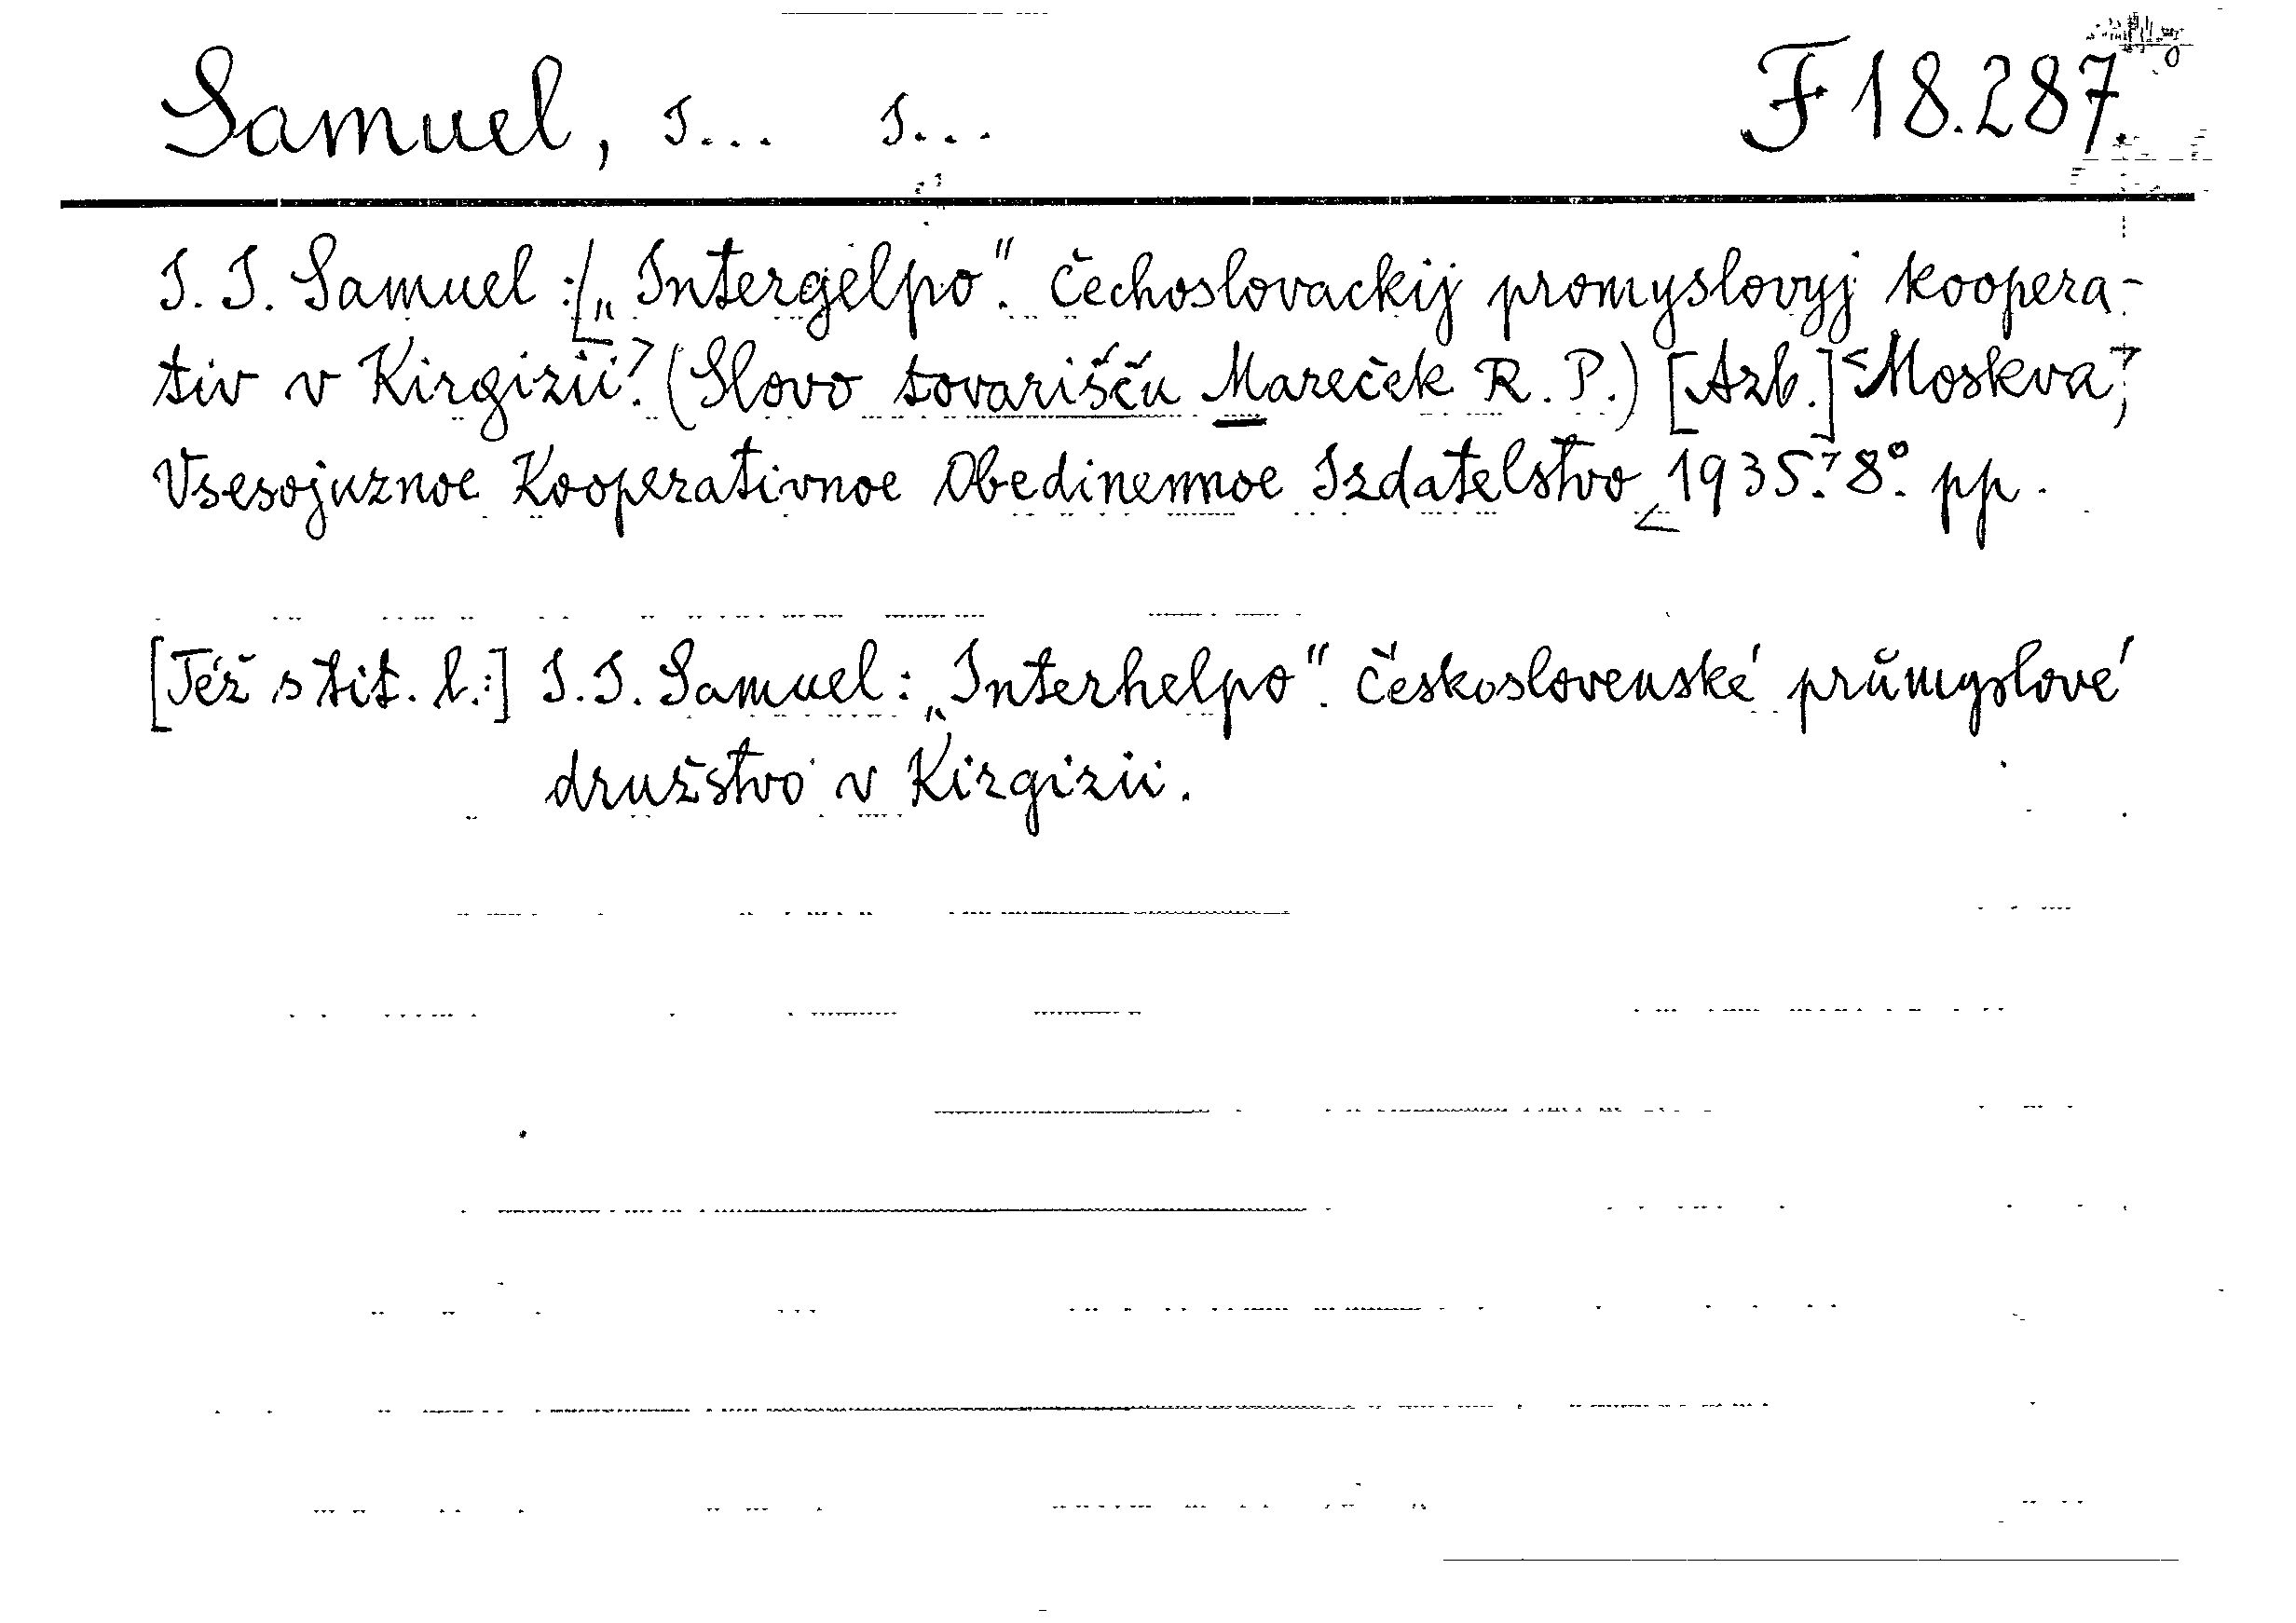 Samuel, I... I... F 18.287.
I. I. Samuel: [„Intergelpo“. Čechoslovackij promyslovyj koopera-
tiv v Kirgizii.⁊ (Slovo tovarišču Mareček R. P.) [Azb.] <Moskva,>
Vsesojuznoe Kooperativnoe Obedinennoe Izdatelstvo <1935.> 8°. pp.
[Též s tit. l.:] I. I. Samuel: „Interhelpo“. Československé průmyslové
družstvo v Kirgizii.